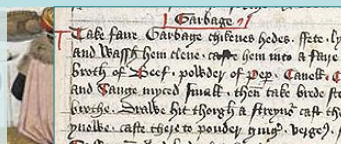 Garbage
Take faire Garbage chikenes hedes. ffete. ly
and Wassh hem clene. caste hem into a faire
broth of Beef. powder of Pepr. Canell. C
and Sauge myced small. then take brede ste
brothe. Drawe hit thorgh a streynr cast the
ynowe. caste there to pouder gingr. vergeꝭ. s